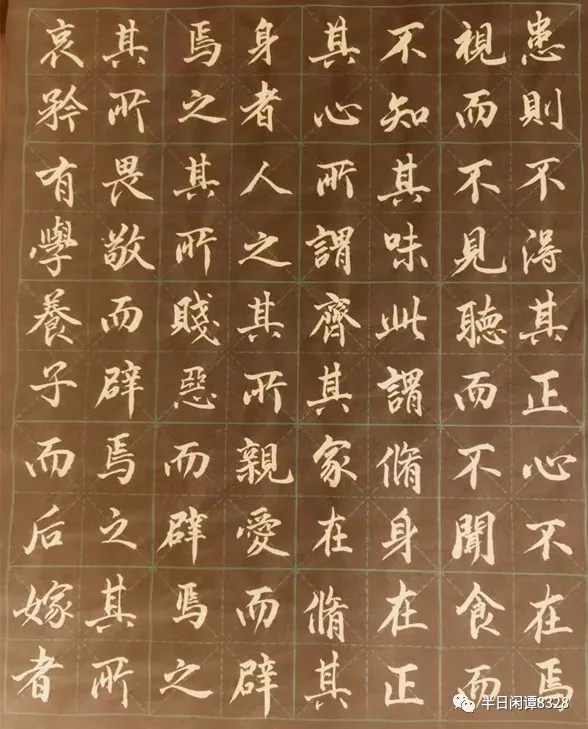 患則不得其正心不在焉
視而不見聽而不聞食而
不知其味此謂脩身在正
其心所謂齊其家在脩其
身者人之其所親愛而辟
焉之其所賤惡而辟焉之
其所畏敬而辟焉之其所
哀矜有學養子而后嫁者
半日闲谭8328